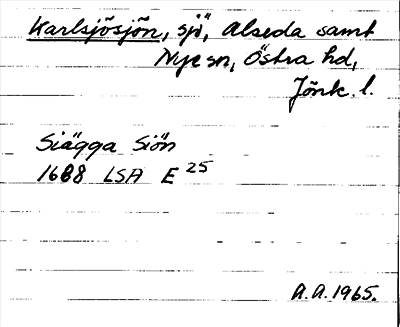 Karlsjösjön, sjö, Alseda samt
Nye sn, Östra hd,
Jönk. l.
Siägga Siön
1688 LSA E 25
A.A. 1965.